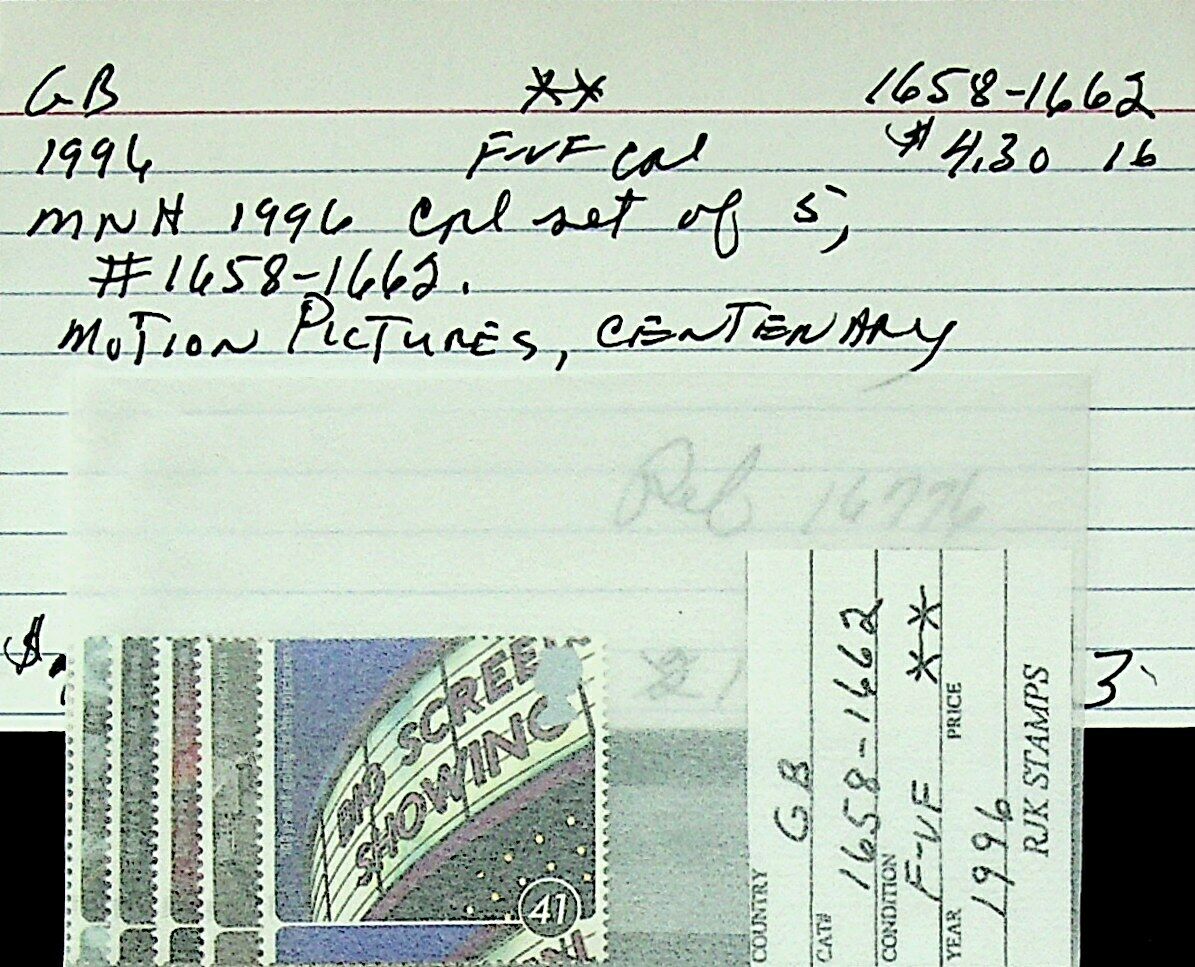 GB ** 1658-1662
1996 F-VF Cpl $4.30 16
MNH 1996 Cpl set of 5,
#1658-1662.
MOTION PICTURES, CENTENARY
16776
$
21
3
BIG SCREEN
SHOWING
41
COUNTRY GB
CAT# 1658-1662
CONDITION F-VF **
PRICE
YEAR 1996
RJK STAMPS